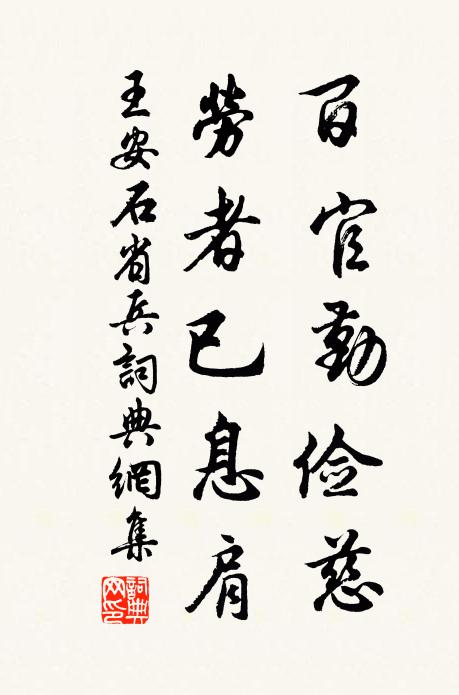 百官勤俭慈
勞者已息肩
王安石省兵詞典網集
詞典网印